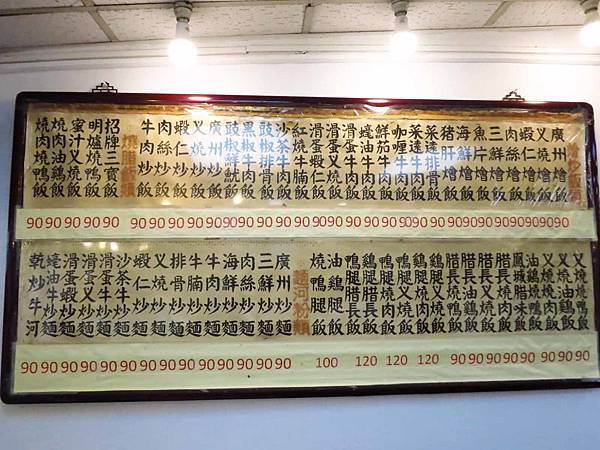 廣州燴飯
叉燒燴飯
蝦仁燴飯
肉絲燴飯
三鮮燴飯
魚片燴飯
海鮮燴飯
豬肝燴飯
采逹排骨飯
采逹牛肉飯
咖喱牛肉飯
鮮茄牛肉飯
蠔油牛肉飯
滑蛋牛肉飯
滑蛋叉燒飯
滑蛋蝦仁飯
紅燒牛腩飯
沙茶牛肉飯
豉椒排骨飯
黑椒牛肉飯
豉椒鮮魷飯
廣州炒飯
叉燒炒飯
蝦仁炒飯
肉絲炒飯
牛肉炒飯
燒腊飯類
招牌三寶飯
明爐燒鴨飯
蜜汁叉燒飯
燒肉油鷄飯
燒肉燒鴨飯
90 90 90 90 90 90 90 90 90 90 90 90 90 90 90 90 90 90 90 90 90 90 90 90 90 90 90 90 90 90 90
叉燒燒鴨飯
叉燒油鷄飯
叉燒燒肉飯
油鷄燒鴨飯
鳳城腊味飯
腊長燒肉飯
腊長油鷄飯
腊長燒鴨飯
腊長叉燒飯
鷄腿燒肉飯
鷄腿叉燒飯
鴨腿叉燒飯
鴨腿燒肉飯
鷄腿腊長飯
鴨腿腊長飯
油鷄腿飯
燒鴨腿飯
麵河粉類
廣州炒麵
三鮮炒麵
肉絲炒麵
海鮮炒麵
牛肉炒麵
牛腩炒麵
排骨炒麵
叉燒炒麵
蝦仁炒麵
沙茶牛肉麵
滑蛋牛肉麵
滑蛋叉燒麵
滑蛋蝦仁麵
蠔油牛肉麵
乾炒牛河
90 90 90 90 90 90 90 90 90 90 90 90 90 90 90 100 120 120 120 90 90 90 90 90 90 90 90 90